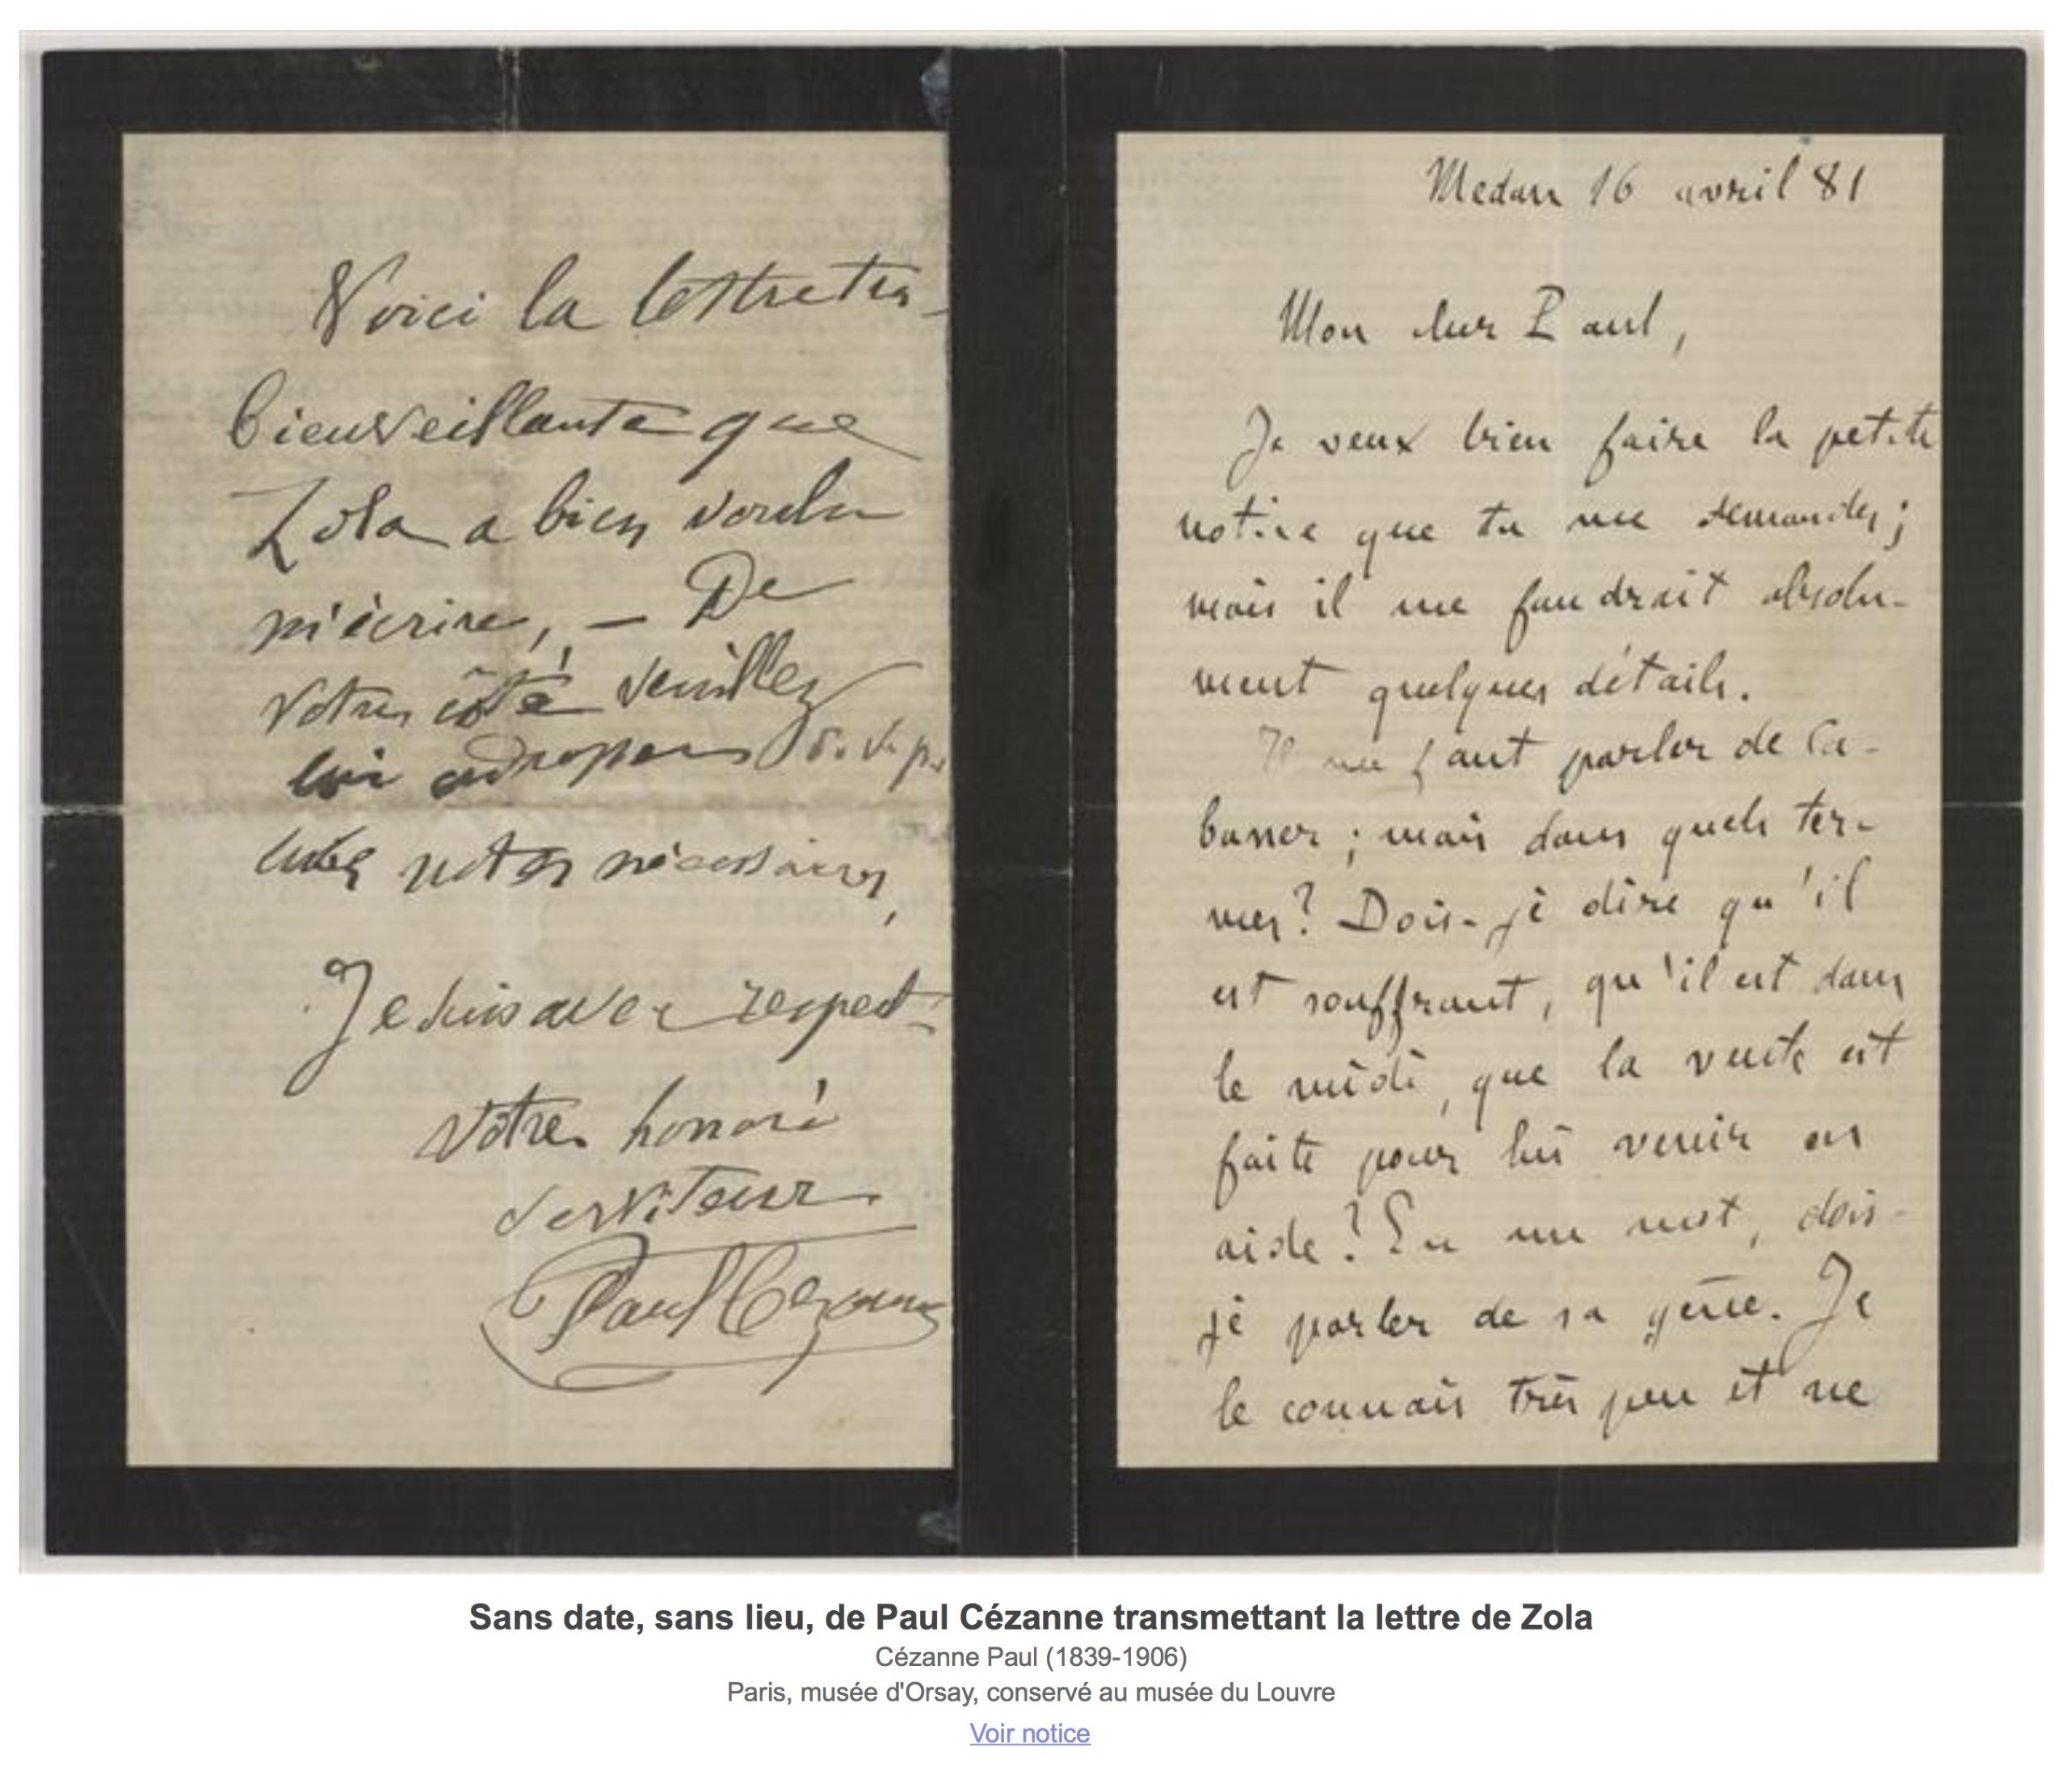 Voici la lettre très
bienveillante que
Zola a bien voulu
m'écrire, — De
votre côté veuillez
lui
notes nécessaires,
Je suis avec respect
Votre honoré
serviteur
Paul Cezanne
Medan 16 avril 81
Mon cher Paul,
Je veux bien faire la petite
notice que tu me demandes ;
mais il me faudrait absolu-
ment quelques détails.
Il me faut parler de Ca-
baner ; mais dans quels ter-
mes ? Dois-je dire qu'il
est souffrant, qu'il est dans
le midi, que la vente est
faite pour lui venir en
aide ? En un mot, dois-
je parler de sa gêne. Je
le connais très peu et ne
Sans date, sans lieu, de Paul Cézanne transmettant la lettre de Zola
Cézanne Paul (1839-1906)
Paris, musée d'Orsay, conservé au musée du Louvre
Voir notice